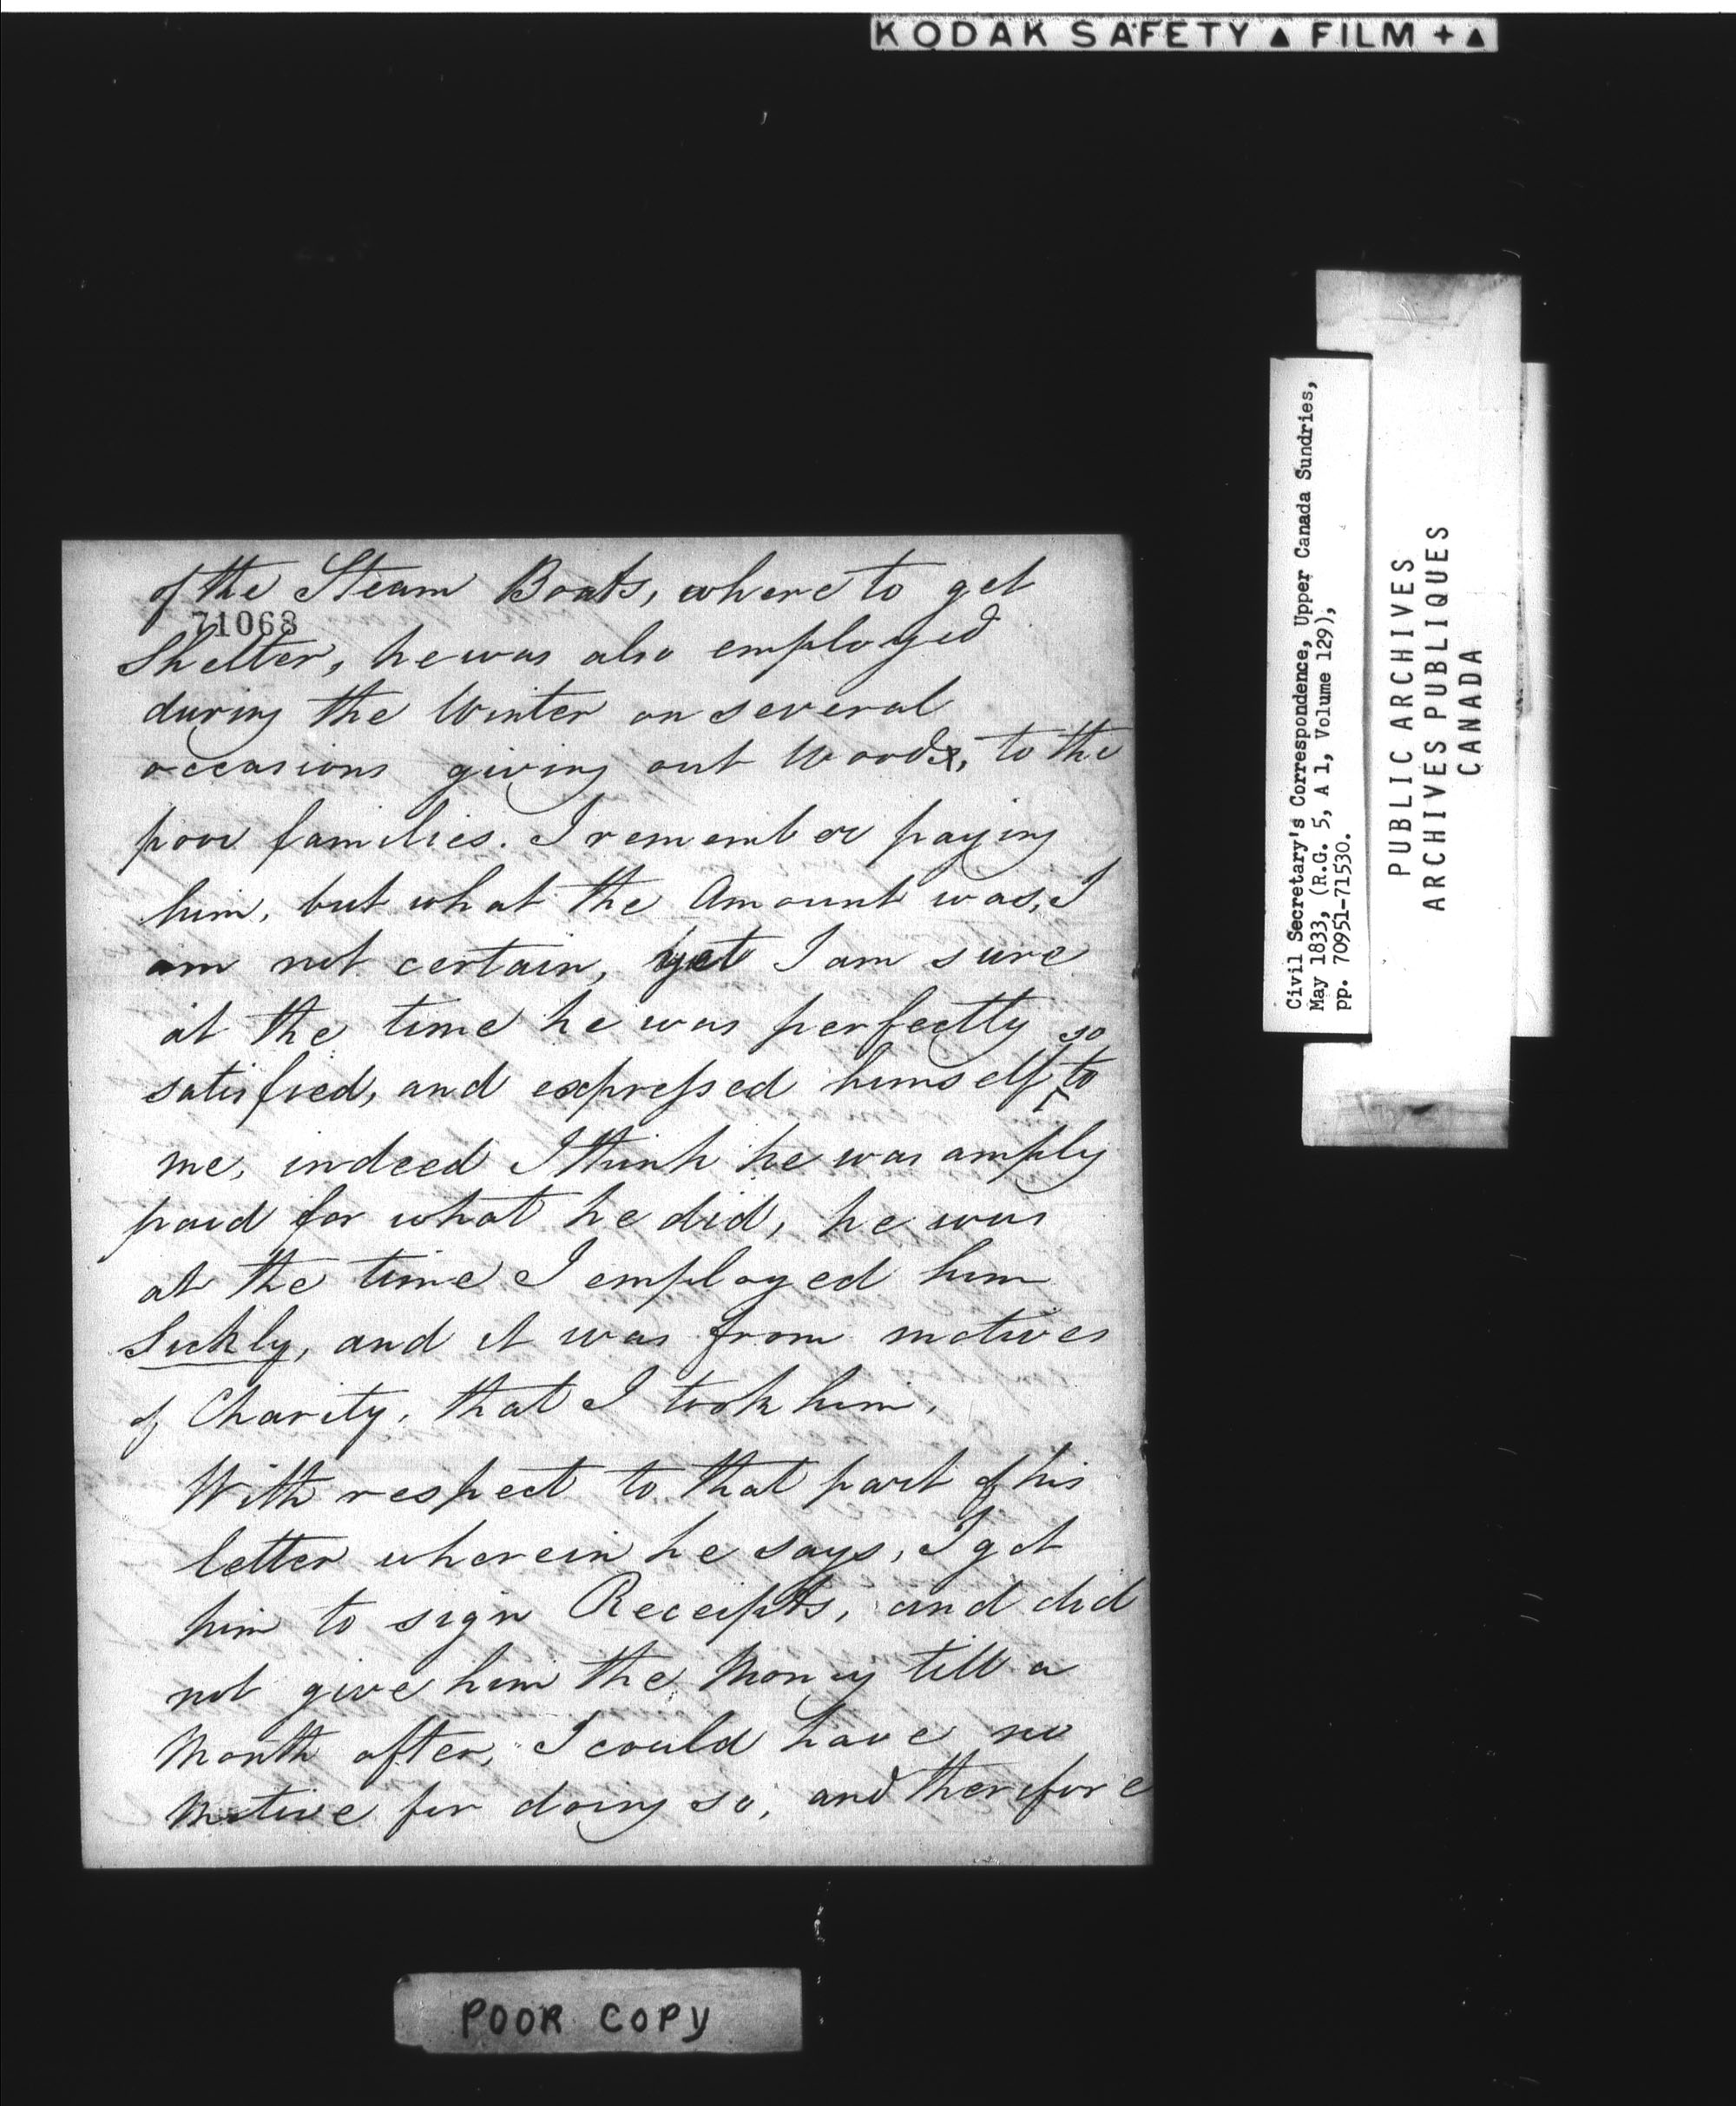 KODAK SAFETY ▲ FILM + ▲
of the Steam Boats, where to get
71063
Shelter, he was also employed
during the Winter on several
occasions giving out Wood, to the
poor families. I remember paying
him, but what the Amount was, I
am not certain, yet I am sure
at the time he was perfectly
satisfied, and expressed himself so to
me, indeed I think he was amply
paid for what he did, he was
at the time I employed him
Sickly, and it was from motives
of Charity, that I took him.
With respect to that part of his
letter wherein he says, I get
him to sign Receipts, and did
not give him the Money till a
Month after, I could have no
Motive for doing so, and therefore
Civil Secretary's Correspondence, Upper Canada Sundries,
May 1833, (R.G. 5, A 1, Volume 129),
pp. 70951-71530.
PUBLIC ARCHIVES
ARCHIVES PUBLIQUES
CANADA
POOR COPY